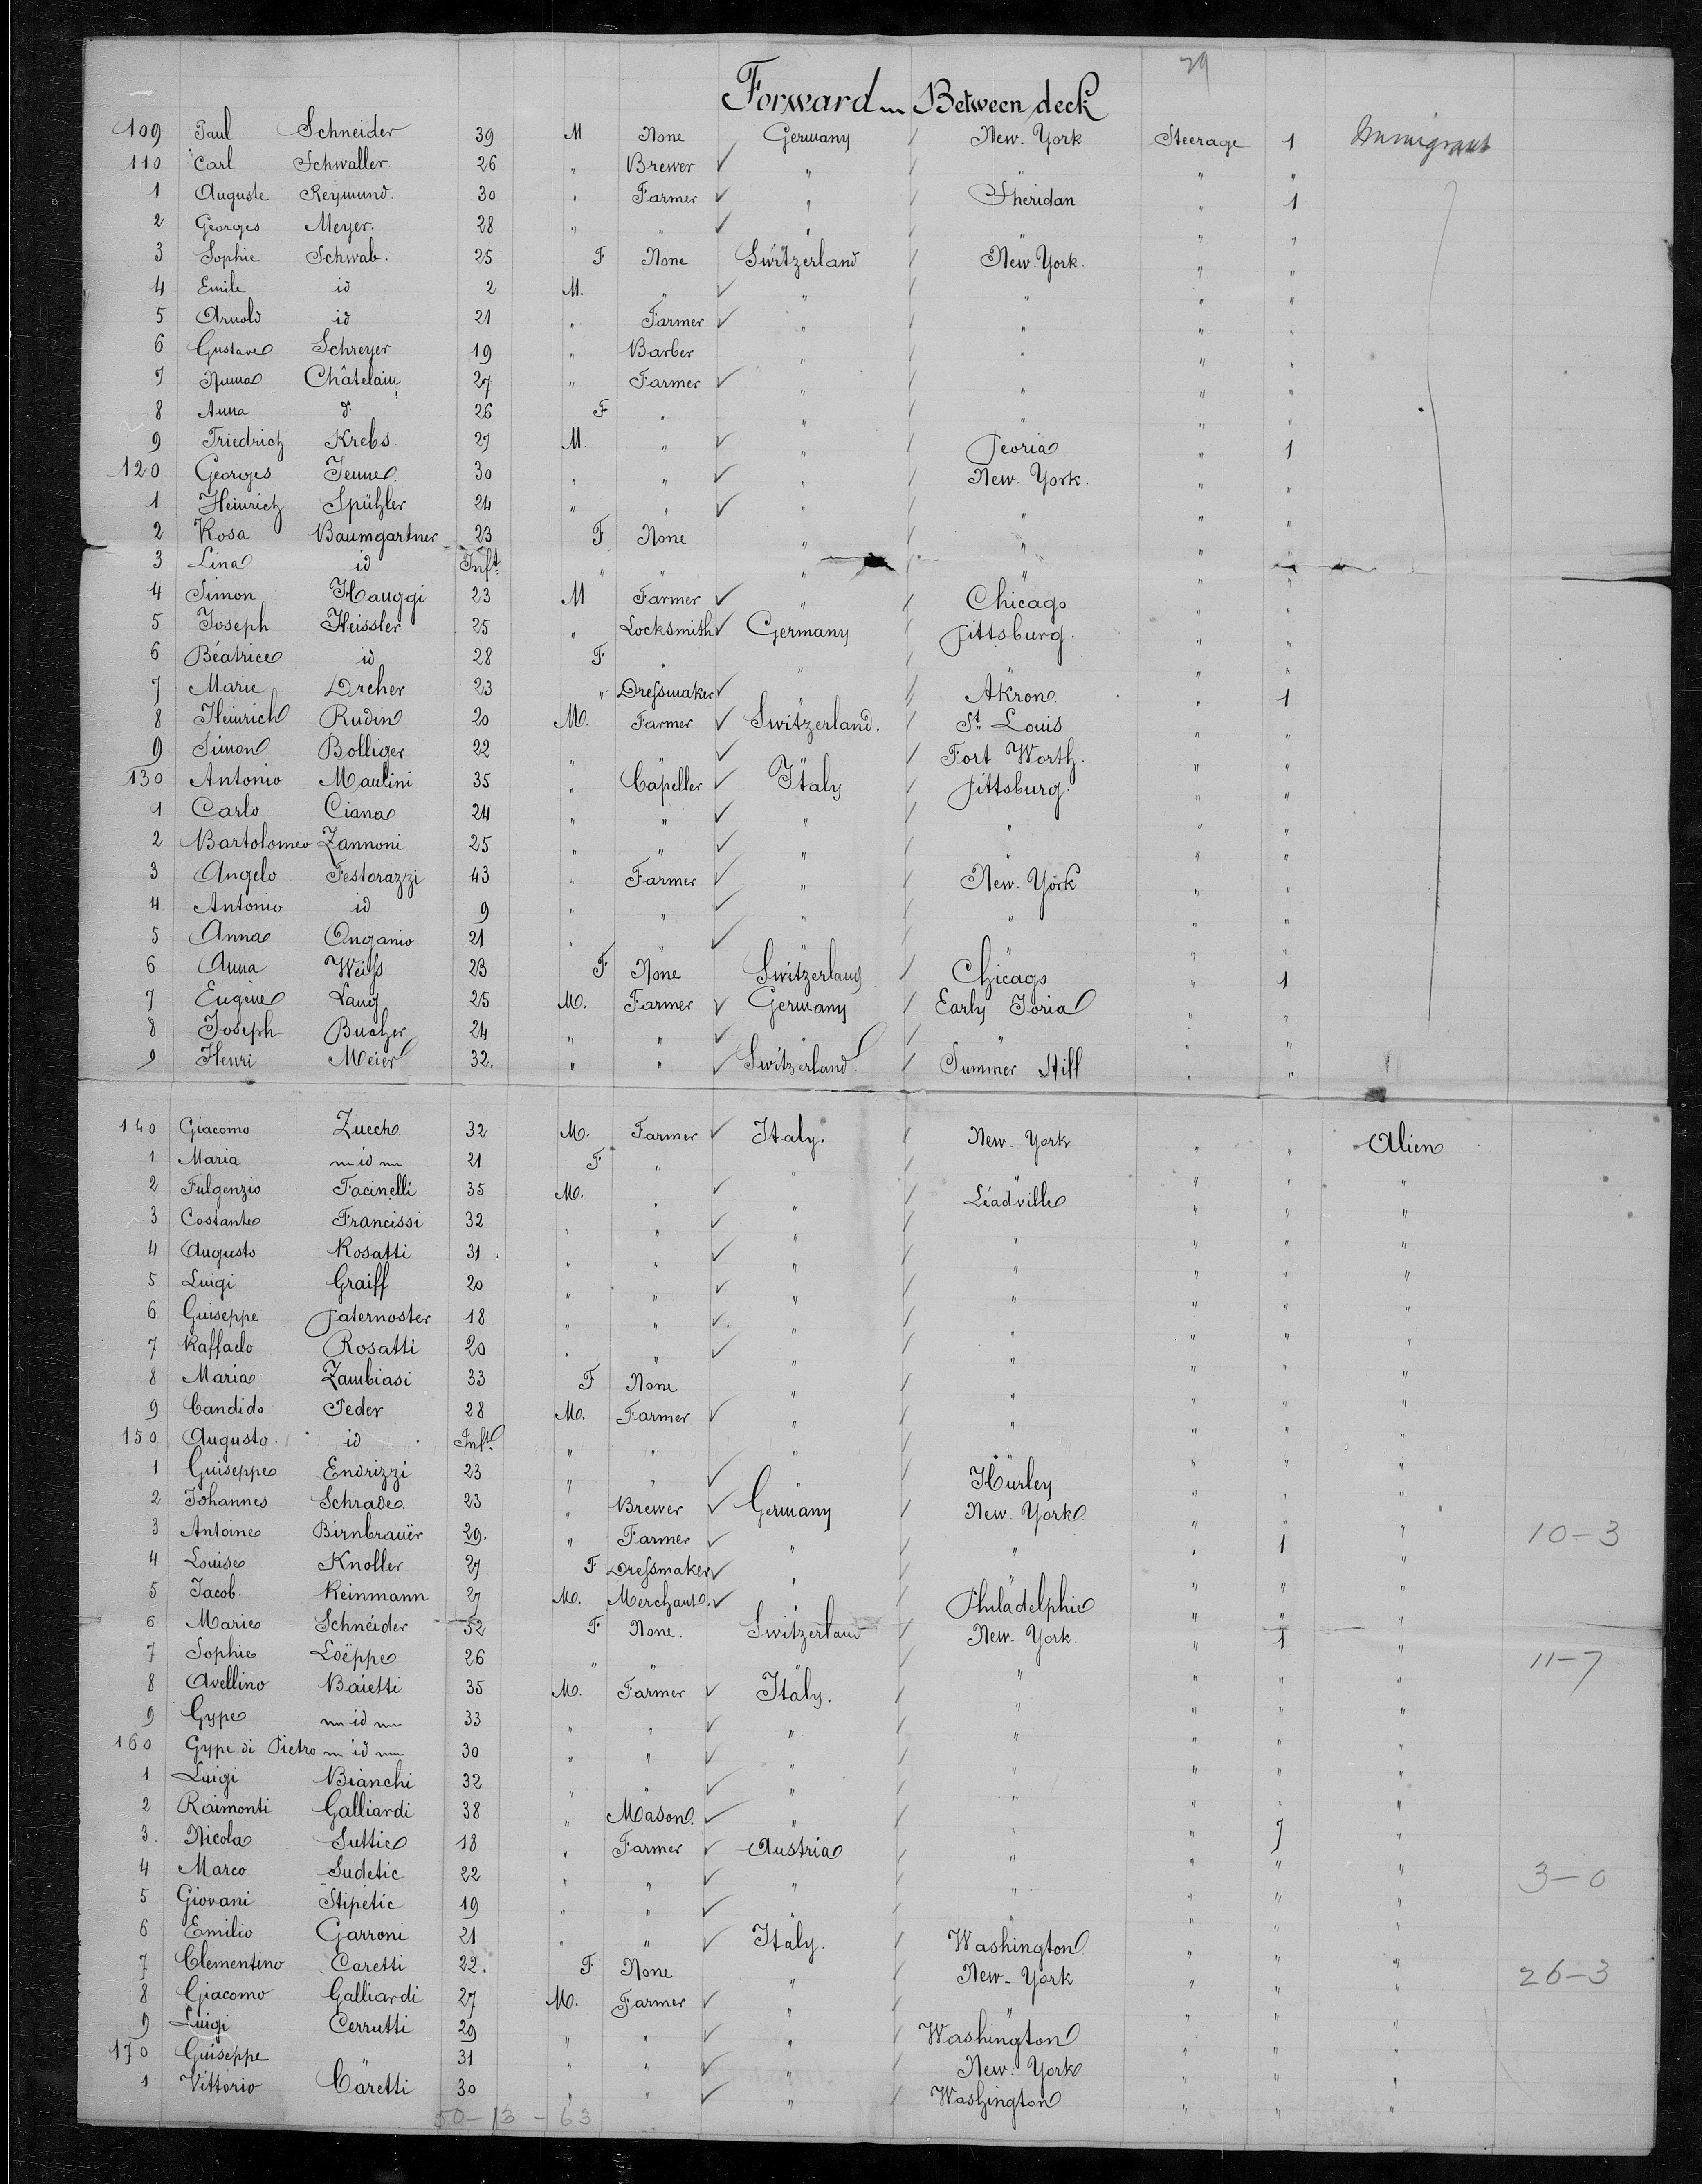 29
Forward Between deck
109 Paul Schneider 39 M None Germany / New-York Steerage 1 Immigrant
110 Carl Schwaller 26 " Brewer ✓ " / " " "
1 Auguste Reymund. 30 " Farmer ✓ " / Sheridan " 1
2 Georges Meyer. 28 " " ✓ " / " " "
3 Sophie Schwab. 25 F None Switzerland / New-York. " "
4 Emile id 2 M. " ✓ " / " " "
5 Arnold id 21 " Farmer ✓ " / " " "
6 Gustave Schreyer 19 " Barber " / " " "
7 Numa Châtelain 27 " Farmer ✓ " / " " "
8 Anna d. 26 F " " / " " "
9 Friedrich Krebs 27 M. " ✓ " / Peoria " 1
120 Georges Jenne. 30 " " ✓ " / New-York. " "
1 Heinrich Spühler 24 " " ✓ " / " " "
2 Rosa Baumgartner 23 F None " / " " "
3 Lina id Inft. " " " / " " "
4 Simon Hauggi 23 M Farmer ✓ " / Chicago " "
5 Joseph Heissler 25 " Locksmith ✓ Germany / Pittsburg. " "
6 Béatrice id 28 F " " / " " "
7 Marie Dreher 23 " Dressmaker ✓ " / Akron. " 1
8 Heinrich Rudin 20 M. Farmer ✓ Switzerland. / St. Louis " "
9 Simon Bolliger 22 " " ✓ " / Fort Worth. " "
130 Antonio Maulini 35 " Capeller ✓ Italy / Pittsburg. " "
1 Carlo Ciana 24 " " ✓ " / " " "
2 Bartolomeo Zannoni 25 " " ✓ " / " " "
3 Angelo Festorazzi 43 " Farmer ✓ " / New-York " "
4 Antonio id 9 " " ✓ " / " " "
5 Anna Onganio 21 " ✓ " / " " "
6 Anna Weiss 23 F None Switzerland / Chicago " 1
7 Eugène Lang 25 M. Farmer ✓ Germany / Early Joria " "
8 Joseph Bucher 24 " " ✓ " / " " "
9 Henri Meier 32. " " ✓ Switzerland / Summer Hill " "
140 Giacomo Zuech. 32 M. Farmer ✓ Italy. / New-York " " Alien
1 Maria id 21 F " " / " " " "
2 Fulgenzio Facinelli 35 M. " ✓ " / Leadville " " "
3 Costante Francissi 32 " " ✓ " / " " " "
4 Augusto Rosatti 31 " " ✓ " / " " " "
5 Luigi Graiff 20 " " ✓ " / " " " "
6 Guiseppe Paternoster 18 " " ✓ " / " " " "
7 Raffaelo Rosatti 20 " " ✓ " / " " " "
8 Maria Zambiasi 33 F None " / " " " "
9 Candido Peder 28 M. Farmer ✓ " / " " " "
150 Augusto id Inft. " " " / " " " "
1 Guiseppe Endrizzi 23 " " ✓ " / Hurley " " "
2 Johannes Schrade. 23 " Brewer ✓ Germany / New-York " " "
3 Antoine Birnbrauër 29. " Farmer ✓ " / " " 1 " 10-3
4 Louise Knoller 27 F Dressmaker ✓ " / " " " "
5 Jacob. Reinmann 27 M. Merchant. ✓ " / Philadelphie " " "
6 Marie Schneider 52 F None. Switzerland / New-York. " 1 "
7 Sophie Loëppe 26 " " " / " " " " 11-7
8 Avellino Baietti 35 M. Farmer ✓ Italy. / " " " "
9 Gype id 33 " " ✓ " / " " " "
160 Gype di Pietro id 30 " " ✓ " / " " " "
1 Luigi Bianchi 32 " " ✓ " / " " " "
2 Raimonti Galliardi 38 " Mason. ✓ " / " " " "
3. Nicola Suttic 18 " Farmer ✓ Austria / " " 7 "
4 Marco Sudetic 22 " " ✓ " / " " " " 3-0
5 Giovani Stipétic 19 " " ✓ " / " " " "
6 Emilio Garroni 21 " " ✓ Italy. / Washington " " "
7 Clementino Caretti 22. F None " / New-York " " " 26-3
8 Giacomo Galliardi 27 M. Farmer ✓ " / " " " "
9 Luigi Cerrutti 29 " " ✓ " / Washington " " "
170 Guiseppe " 31 " " ✓ " / New-York " " "
1 Vittorio Caretti 30 " " ✓ " / Washington " " "
50-13-63